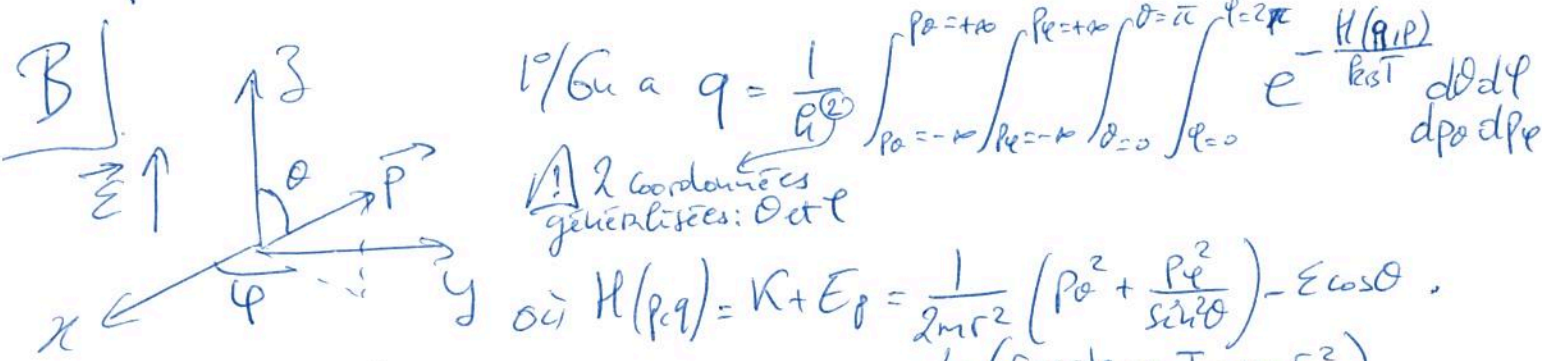 B
z
ε⃗ ↑ θ p⃗
x φ y
1°/ On a q = 1/h^(2) ∫_{pθ=-∞}^{pθ=+∞} ∫_{pφ=-∞}^{pφ=+∞} ∫_{θ=0}^{θ=π} ∫_{φ=0}^{φ=2π} e^{-H(q,p)/(k_BT)} dθdφ
dpθ dpφ
⚠ 2 coordonnées
généralisées: θ et φ
où H(p,q) = K + E_p = 1/(2mr²) (pθ² + pφ²/sin²θ) - ε cosθ .